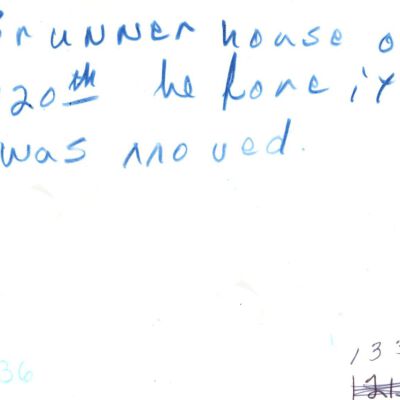 Brunner house o
20th before it
was moved.
36 133